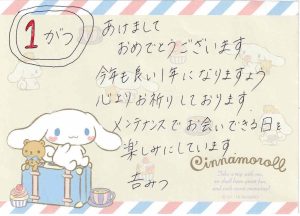 1がつ
あけまして
おめでとうございます
今年も良い1年になりますよう
心よりお祈りしております
メンテナンスでお会いできる日を
楽しみにしています
吉みつ
Cinnamoroll
Take a trip with me,